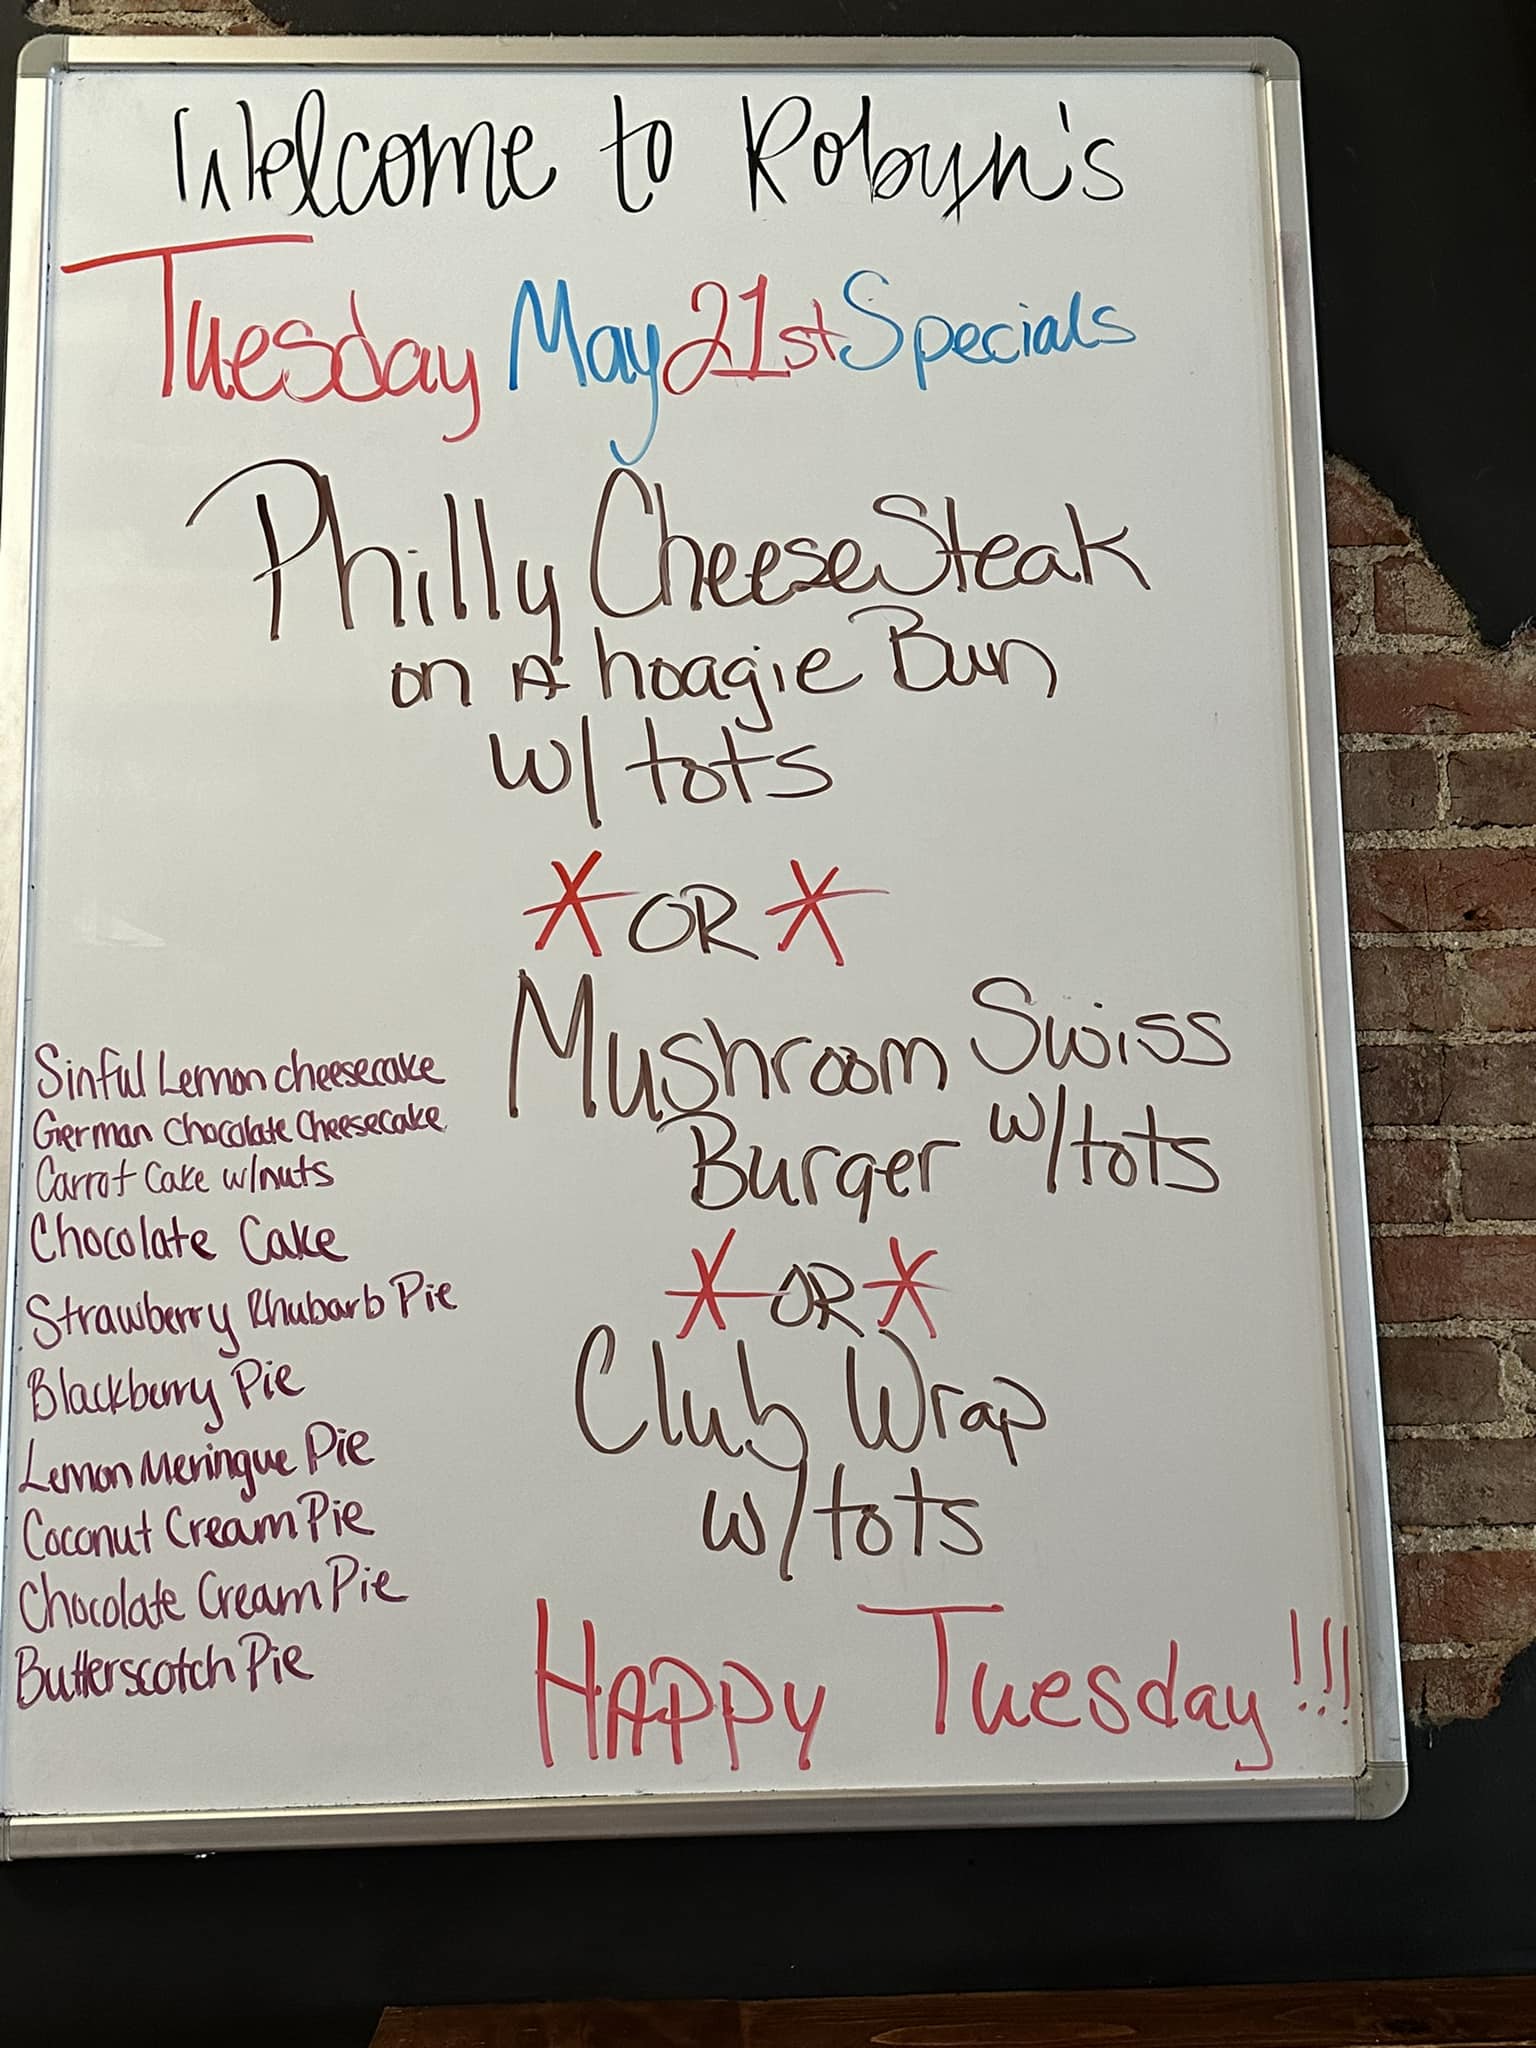 Welcome to Robyn's
Tuesday May 21st Specials
Philly CheeseSteak
on A hoagie Bun
w/ tots
* OR *
Mushroom Swiss
Burger w/tots
* OR *
Club Wrap
w/tots
Happy Tuesday!!!
Sinful Lemon cheesecake
German Chocolate Cheesecake
Carrot Cake w/nuts
Chocolate Cake
Strawberry Rhubarb Pie
Blackberry Pie
Lemon Meringue Pie
Coconut Cream Pie
Chocolate Cream Pie
Butterscotch Pie